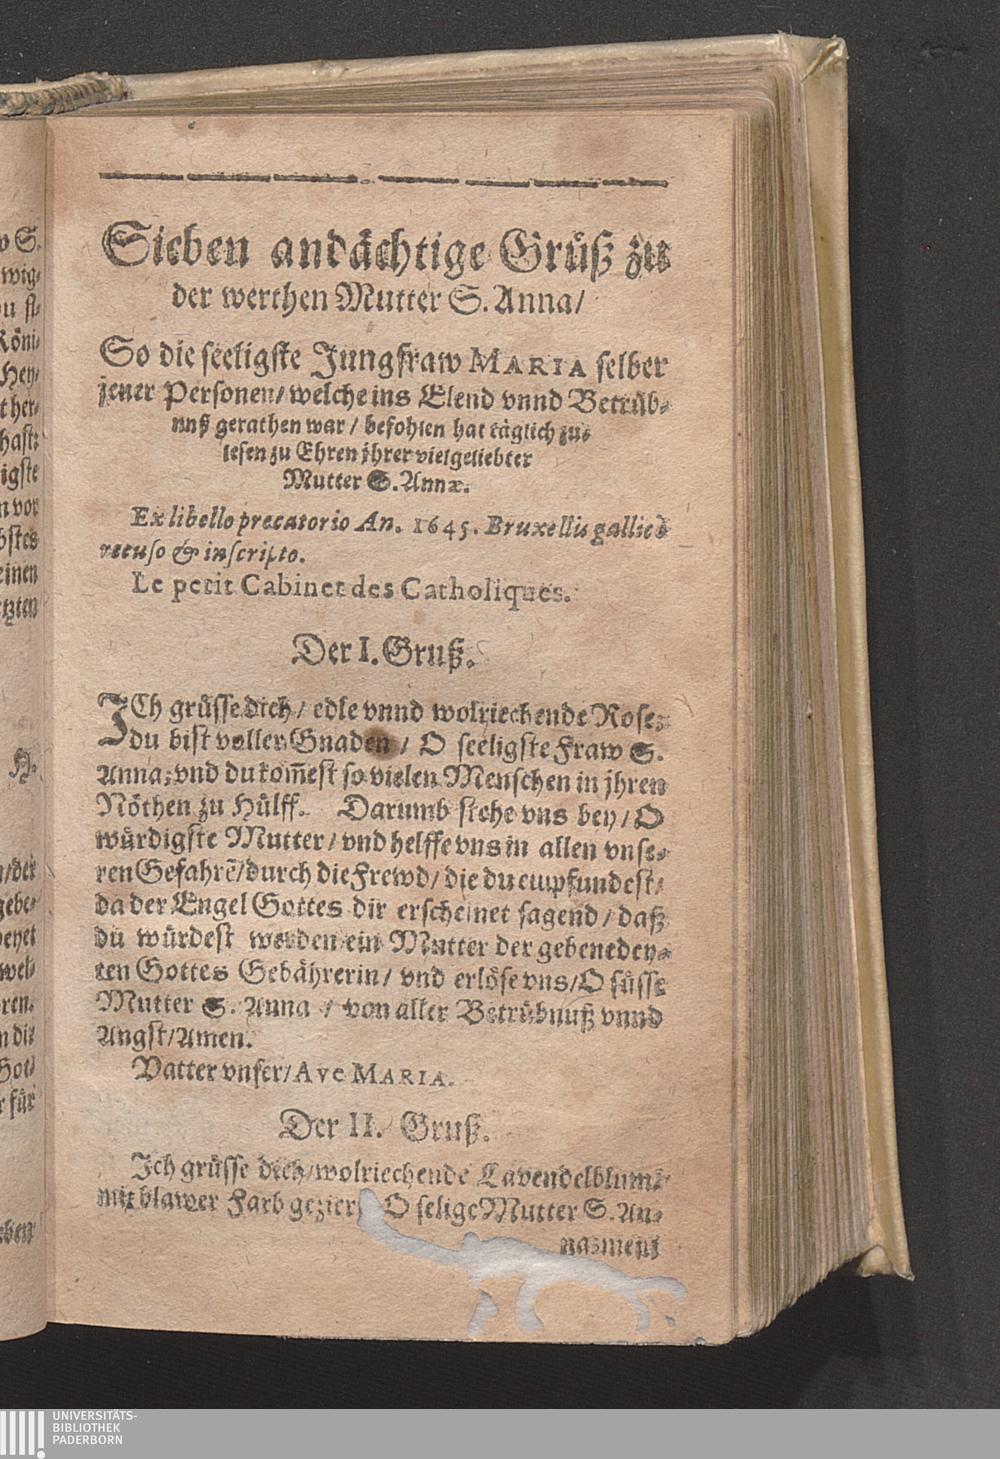 Sieben andächtige Grüß zu
der werthen Mutter S. Anna/
So die seeligste Jungfraw MARIA selber
jener Personen/ welche ins Elend vnnd Betrüb-
nuß gerathen war / befohlen hat täglich zu-
lesen zu Ehren jhrer vielgeliebter
Mutter S. Annæ.
Ex libello precatorio An. 1645. Bruxellis gallicè
recuso & inscripto.
Le petit Cabinet des Catholiques.
Der I. Gruß.
ICh grüsse dich/ edle vnnd wolriechende Rose:
du bist voller Gnaden / O seeligste Fraw S.
Anna; vnd du kom̄est so vielen Menschen in jhren
Nöthen zu Hülff. Darumb stehe vns bey/ O
würdigste Mutter/ vnd helffe vns in allen vnse-
ren Gefahrē/ durch die Frewd/ die du empfundest/
da der Engel Gottes dir erscheinet sagend/ daß
du würdest werden ein Mutter der gebenedey-
ten Gottes Gebährerin/ vnd erlöse vns/ O süsse
Mutter S. Anna / von aller Betrübnuß vnnd
Angst/ Amen.
Vatter vnser/ Ave MARIA.
Der II. Gruß.
Ich grüsse dich/ wolriechende Lavendelblum/
mit blawer Farb geziert O selige Mutter S. An-
v S.
wig-
Köni-
Hey-
ther-
hast:
igste
n vor
bstes
einen
tzten
H.
n/ der
gebe-
wel-
ren.
n die
Got-
r für
eben
UNIVERSITÄTS-
BIBLIOTHEK
PADERBORN